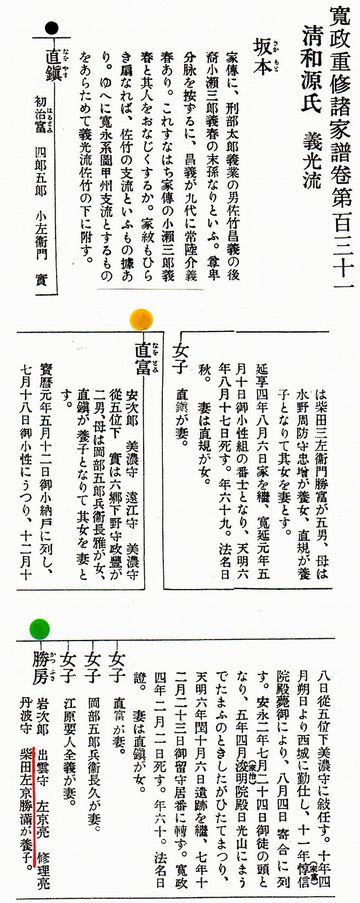 寛政重修諸家譜卷第百三十一
清和源氏 義光流
坂本
さかもと
家傳に、刑部太郎義業の男佐竹昌義の後
裔小瀨三郎義春の末孫なりといふ。尊卑
分脉を按ずるに、昌義が九代に常陸介義
春あり。これすなはち家傳の小瀨三郎義
春と其人をおなじくするか。家紋もひら
き扇なれば、佐竹の支流といふもの據あ
り。ゆへに寛永系圖甲州支流とするもの
をあらためて義光流佐竹の下に附す。
直鎭
なをやす
初治富 四郎五郎 小左衞門 實
はるとみ
は柴田三左衞門勝富が五男、母は
水野周防守忠增が養女、直規が養
子となりて其女を妻とす。
延享四年八月六日家を繼、寛延元年五
月十日御小性組の番士となり、天明六
年八月十七日死す。年六十九。法名日
秋。 妻は直規が女。
女子
直鎭が妻。
直富
なをとみ
安次郎 美濃守 遠江守 美濃守
從五位下 實は六郷下野守政豐が
二男、母は岡部五郎兵衞長雅が女、
直鎭が養子となりて其女を妻と
す。
寶曆元年五月十二日御小納戸に列し、
七月十八日御小性にうつり、十二月十
八日從五位下美濃守に敍任す。十年四
月朔日より西城に勤仕し、十一年惇信
(家重)
院殿薨御により、八月四日寄合に列
す。安永二年七月二十四日御徒の頭と
なり、五年四月浚明院殿日光山にまう
(家治)
でたまふのときしたがひたてまつり、
天明六年閏十月六日遺跡を繼、七年十
二月二十三日御留守居番に轉ず。寛政
四年二月二日死す。年六十。法名日
證。 妻は直鎭が女。
女子
直富が妻。
女子
岡部五郎兵衞長久が妻。
女子
江原要人全義が妻。
勝房
かつふさ
岩次郎 出雲守 左京亮 修理亮
丹波守 柴田左京勝滿が養子。